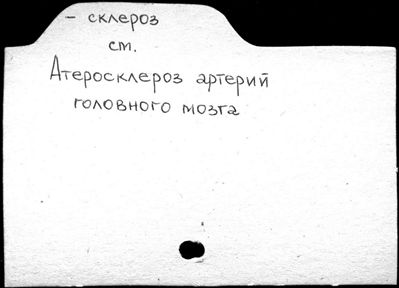 - склероз
см.
Атеросклероз артерий
головного мозга